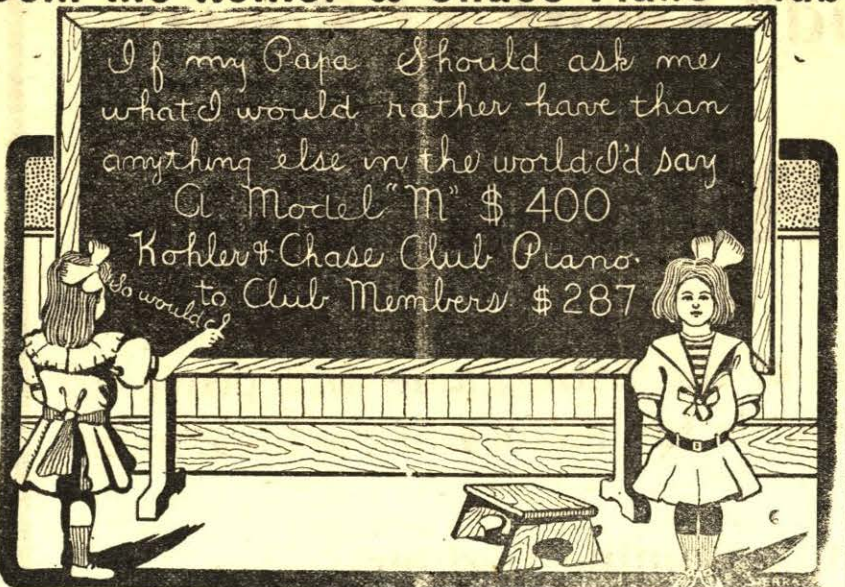 Kohler & Chase Piano Club
If my Papa Should ask me
what I would rather have than
anything else in the world I'd say
A Model "M" $400
Kohler & Chase Club Piano.
to Club Members $287
So would I